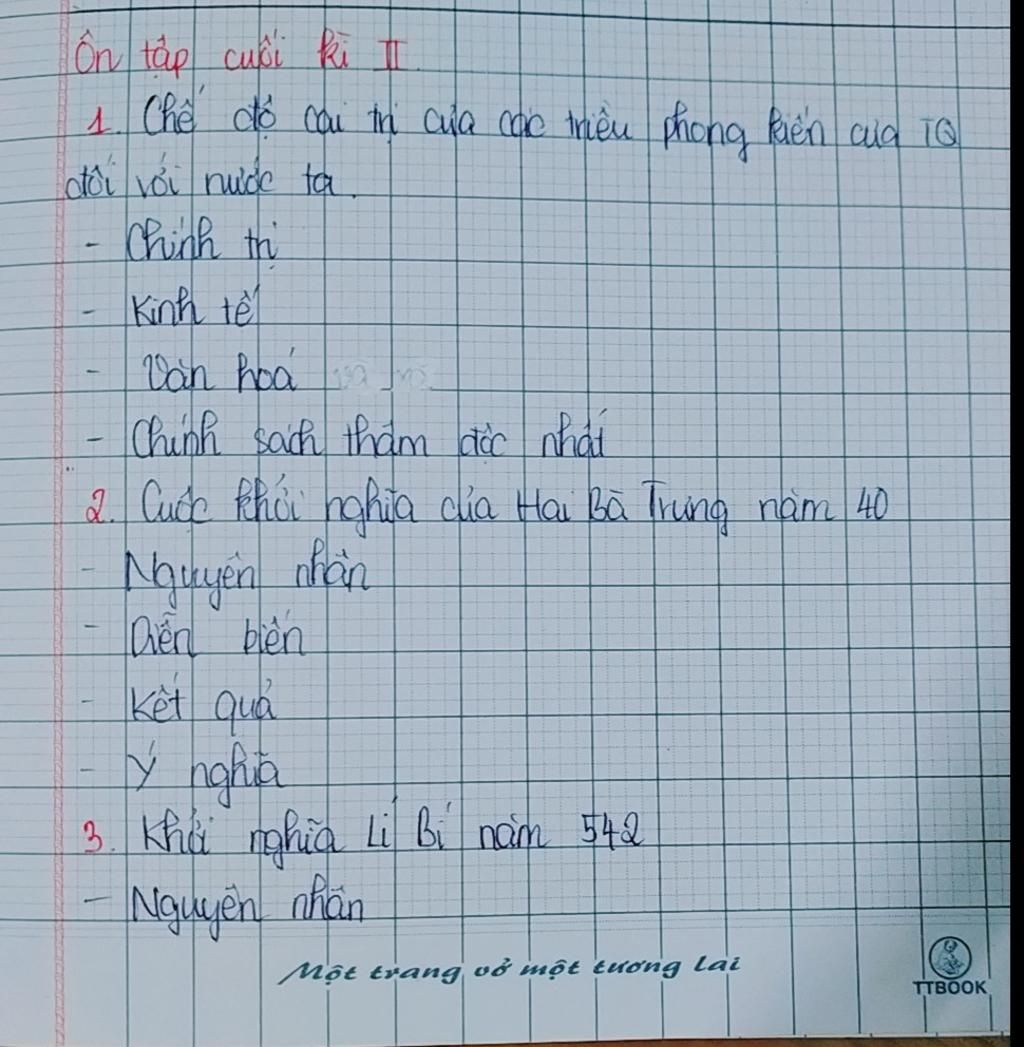 Ôn tập cuối kì II
1. Chế độ cai trị của các triều phong kiến của TQ
đối với nước ta.
- Chính trị
- Kinh tế
- Văn hoá
- Chính sách thâm độc nhất
2. Cuộc khởi nghĩa của Hai Bà Trưng năm 40
- Nguyên nhân
- Diễn biến
- Kết quả
- Ý nghĩa
3. Khởi nghĩa Lí Bí năm 542
- Nguyên nhân
Một trang vở một tương lai
TTBOOK